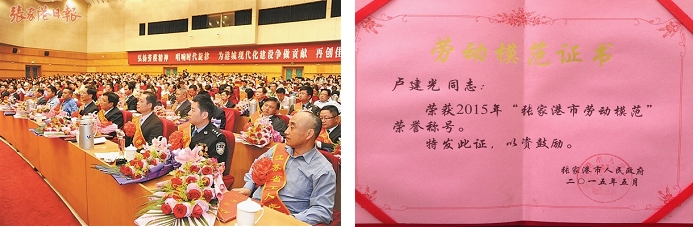 张家港日报
弘扬劳模精神 唱响时代旋律 为港城现代化建设争做贡献 再创佳
劳动模范证书
卢建光同志：
荣获2015年“张家港市劳动模范”
荣誉称号。
特发此证，以资鼓励。
张家港市人民政府
二〇一五年五月